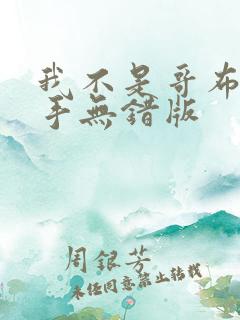 我不是哥布
手無錯版
周銀芳
未经同意禁止转载